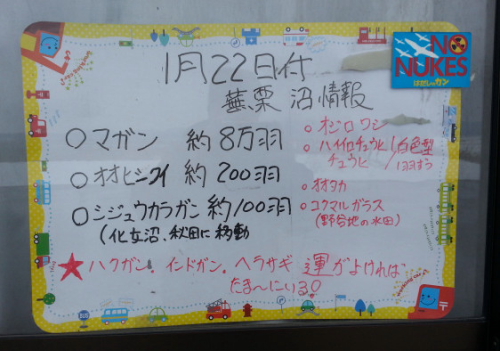 1月22日付
蕪栗沼情報
NO NUKES
はだしのゲン
○マガン 約8万羽
○オオヒシクイ 約200羽
○シジュウカラガン 約100羽
(化女沼、秋田に移動
○オジロワシ
○ハイイロチュウヒ
チュウヒ
白色型
○オオタカ
○コクマルガラス
(野谷地の水田)
★ハクガン、インドガン、ヘラサギ 運がよければ
たま〜にいる!